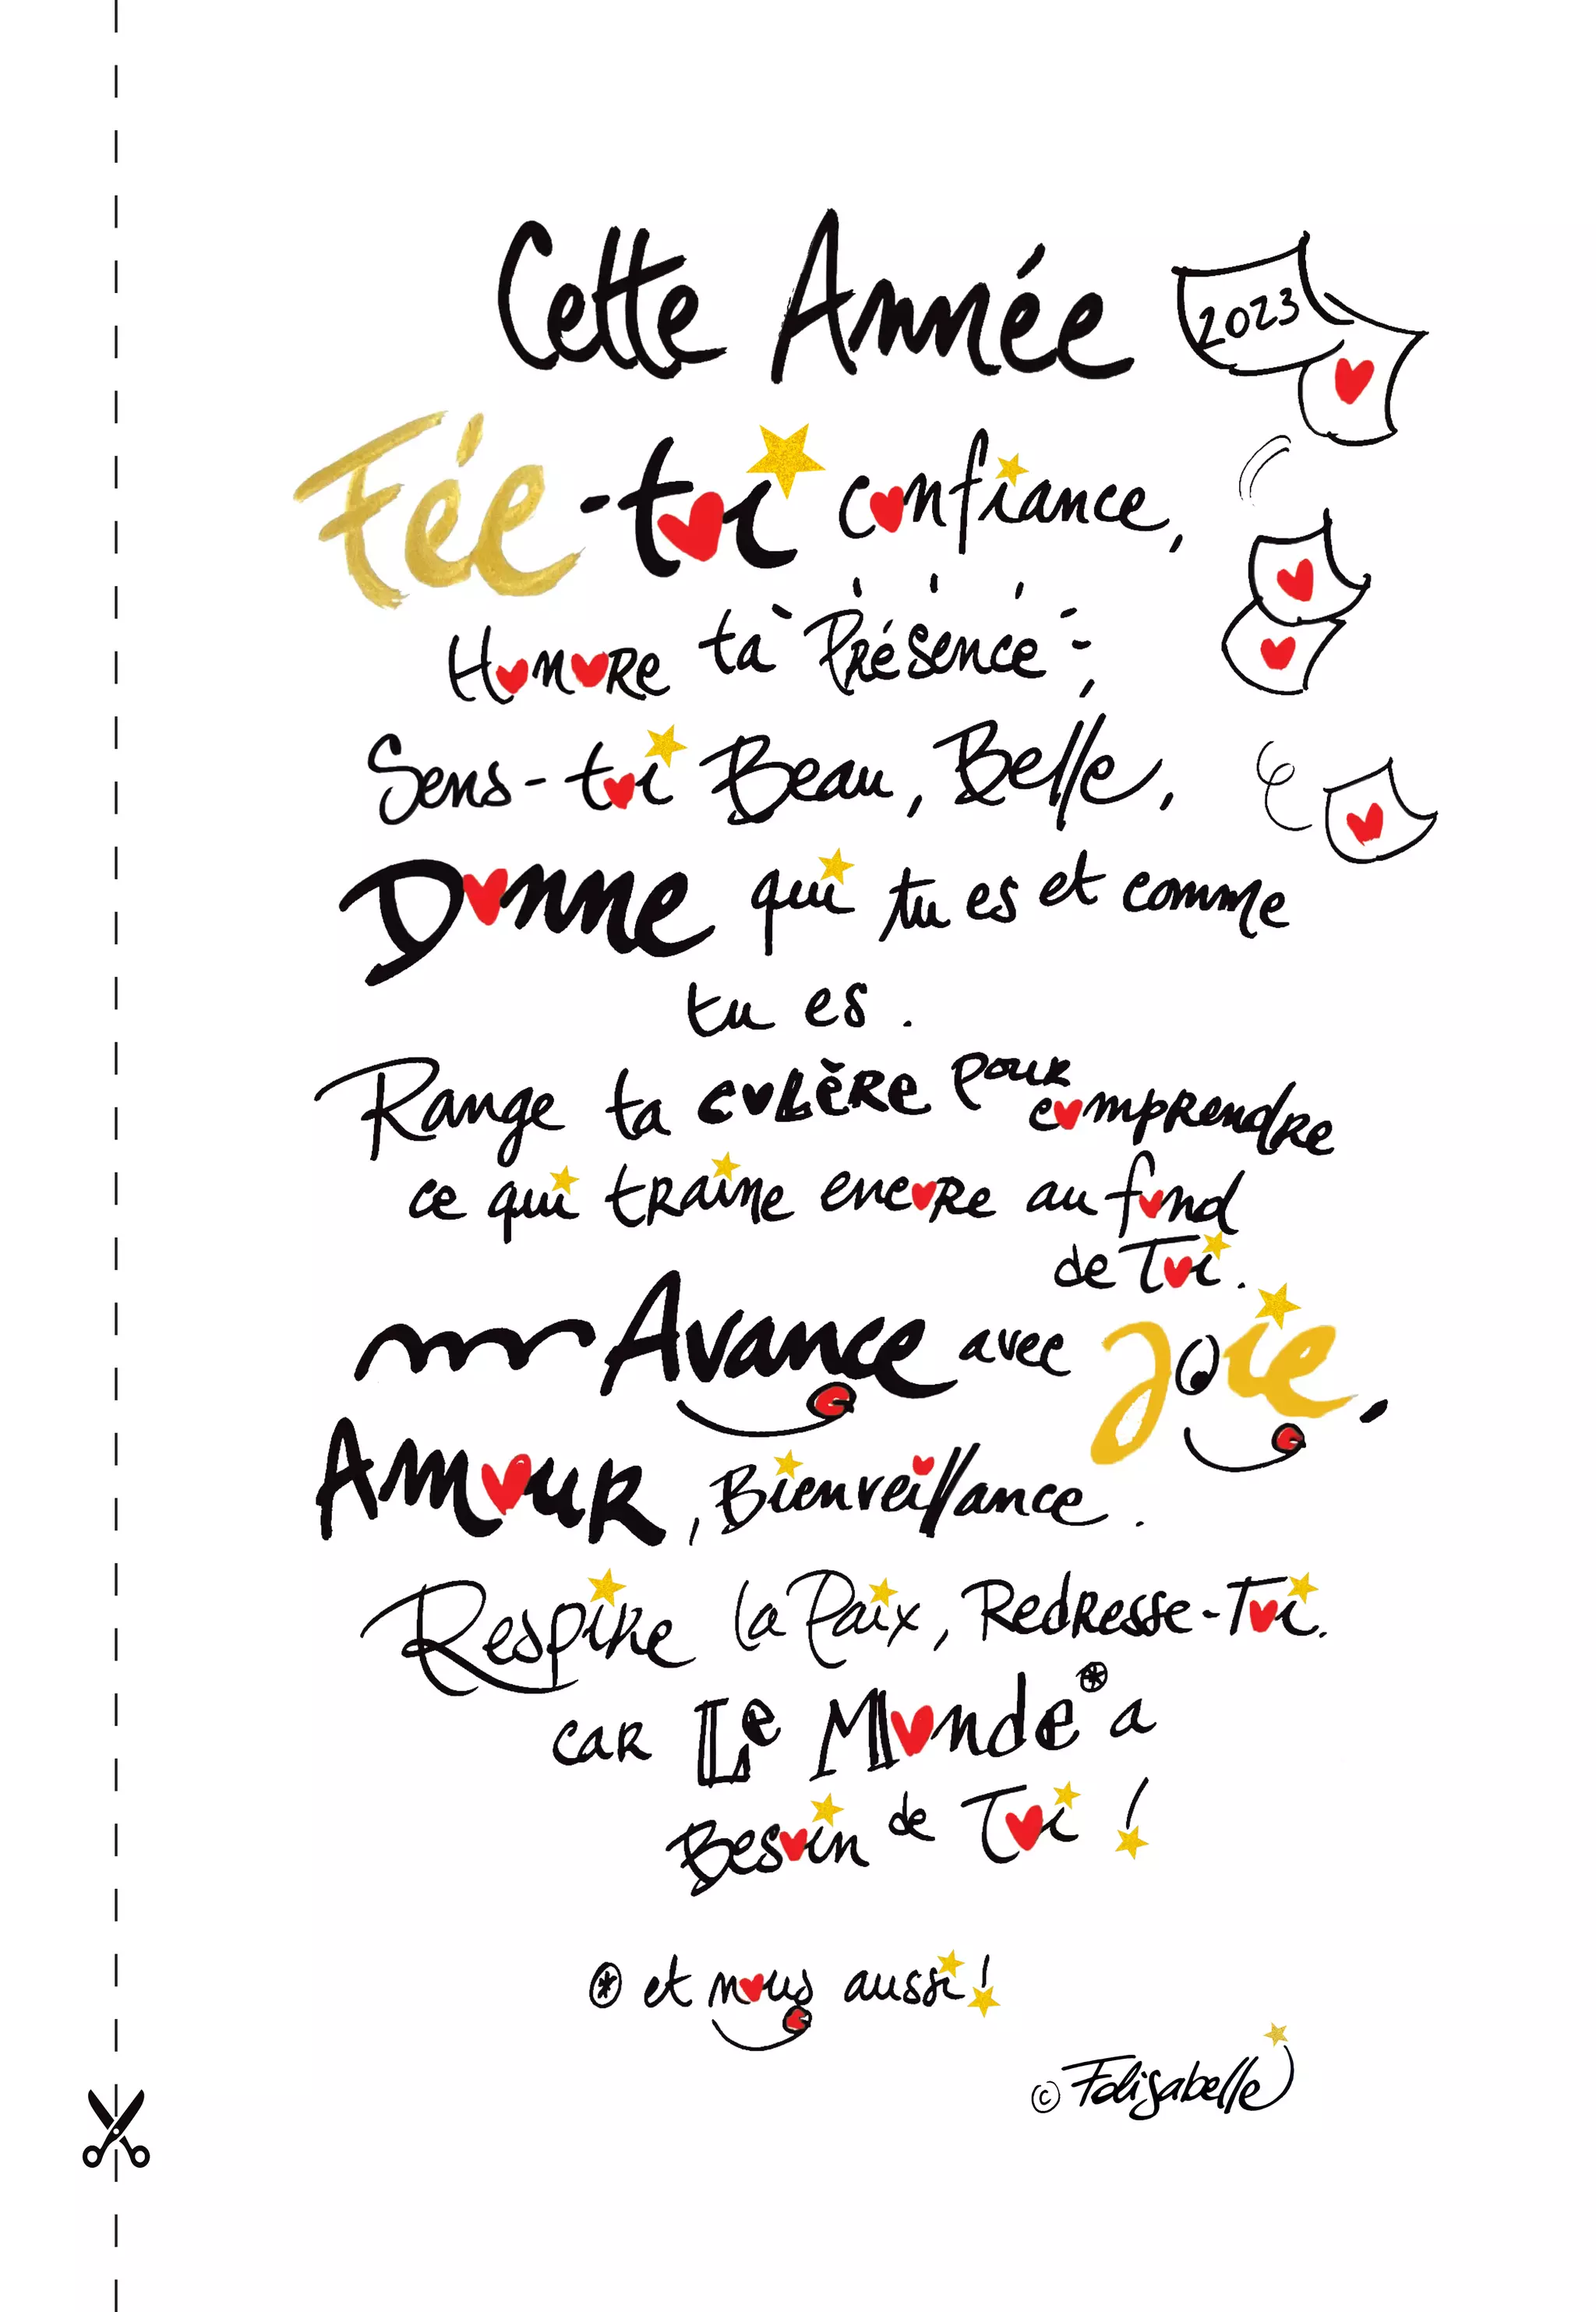 Cette Année 2023
Fée-toi confiance,
Honore ta Présence,
Sens-toi Beau, Belle,
Donne qui tu es et comme
tu es.
Range ta colère pour comprendre
ce qui traine encore au fond
de Toi.
Avance avec Joie,
Amour, Bienveillance.
Respire la Paix, Redresse-Toi.
car Le Monde* a
Besoin de Toi !
* et nous aussi !
© Folisabelle